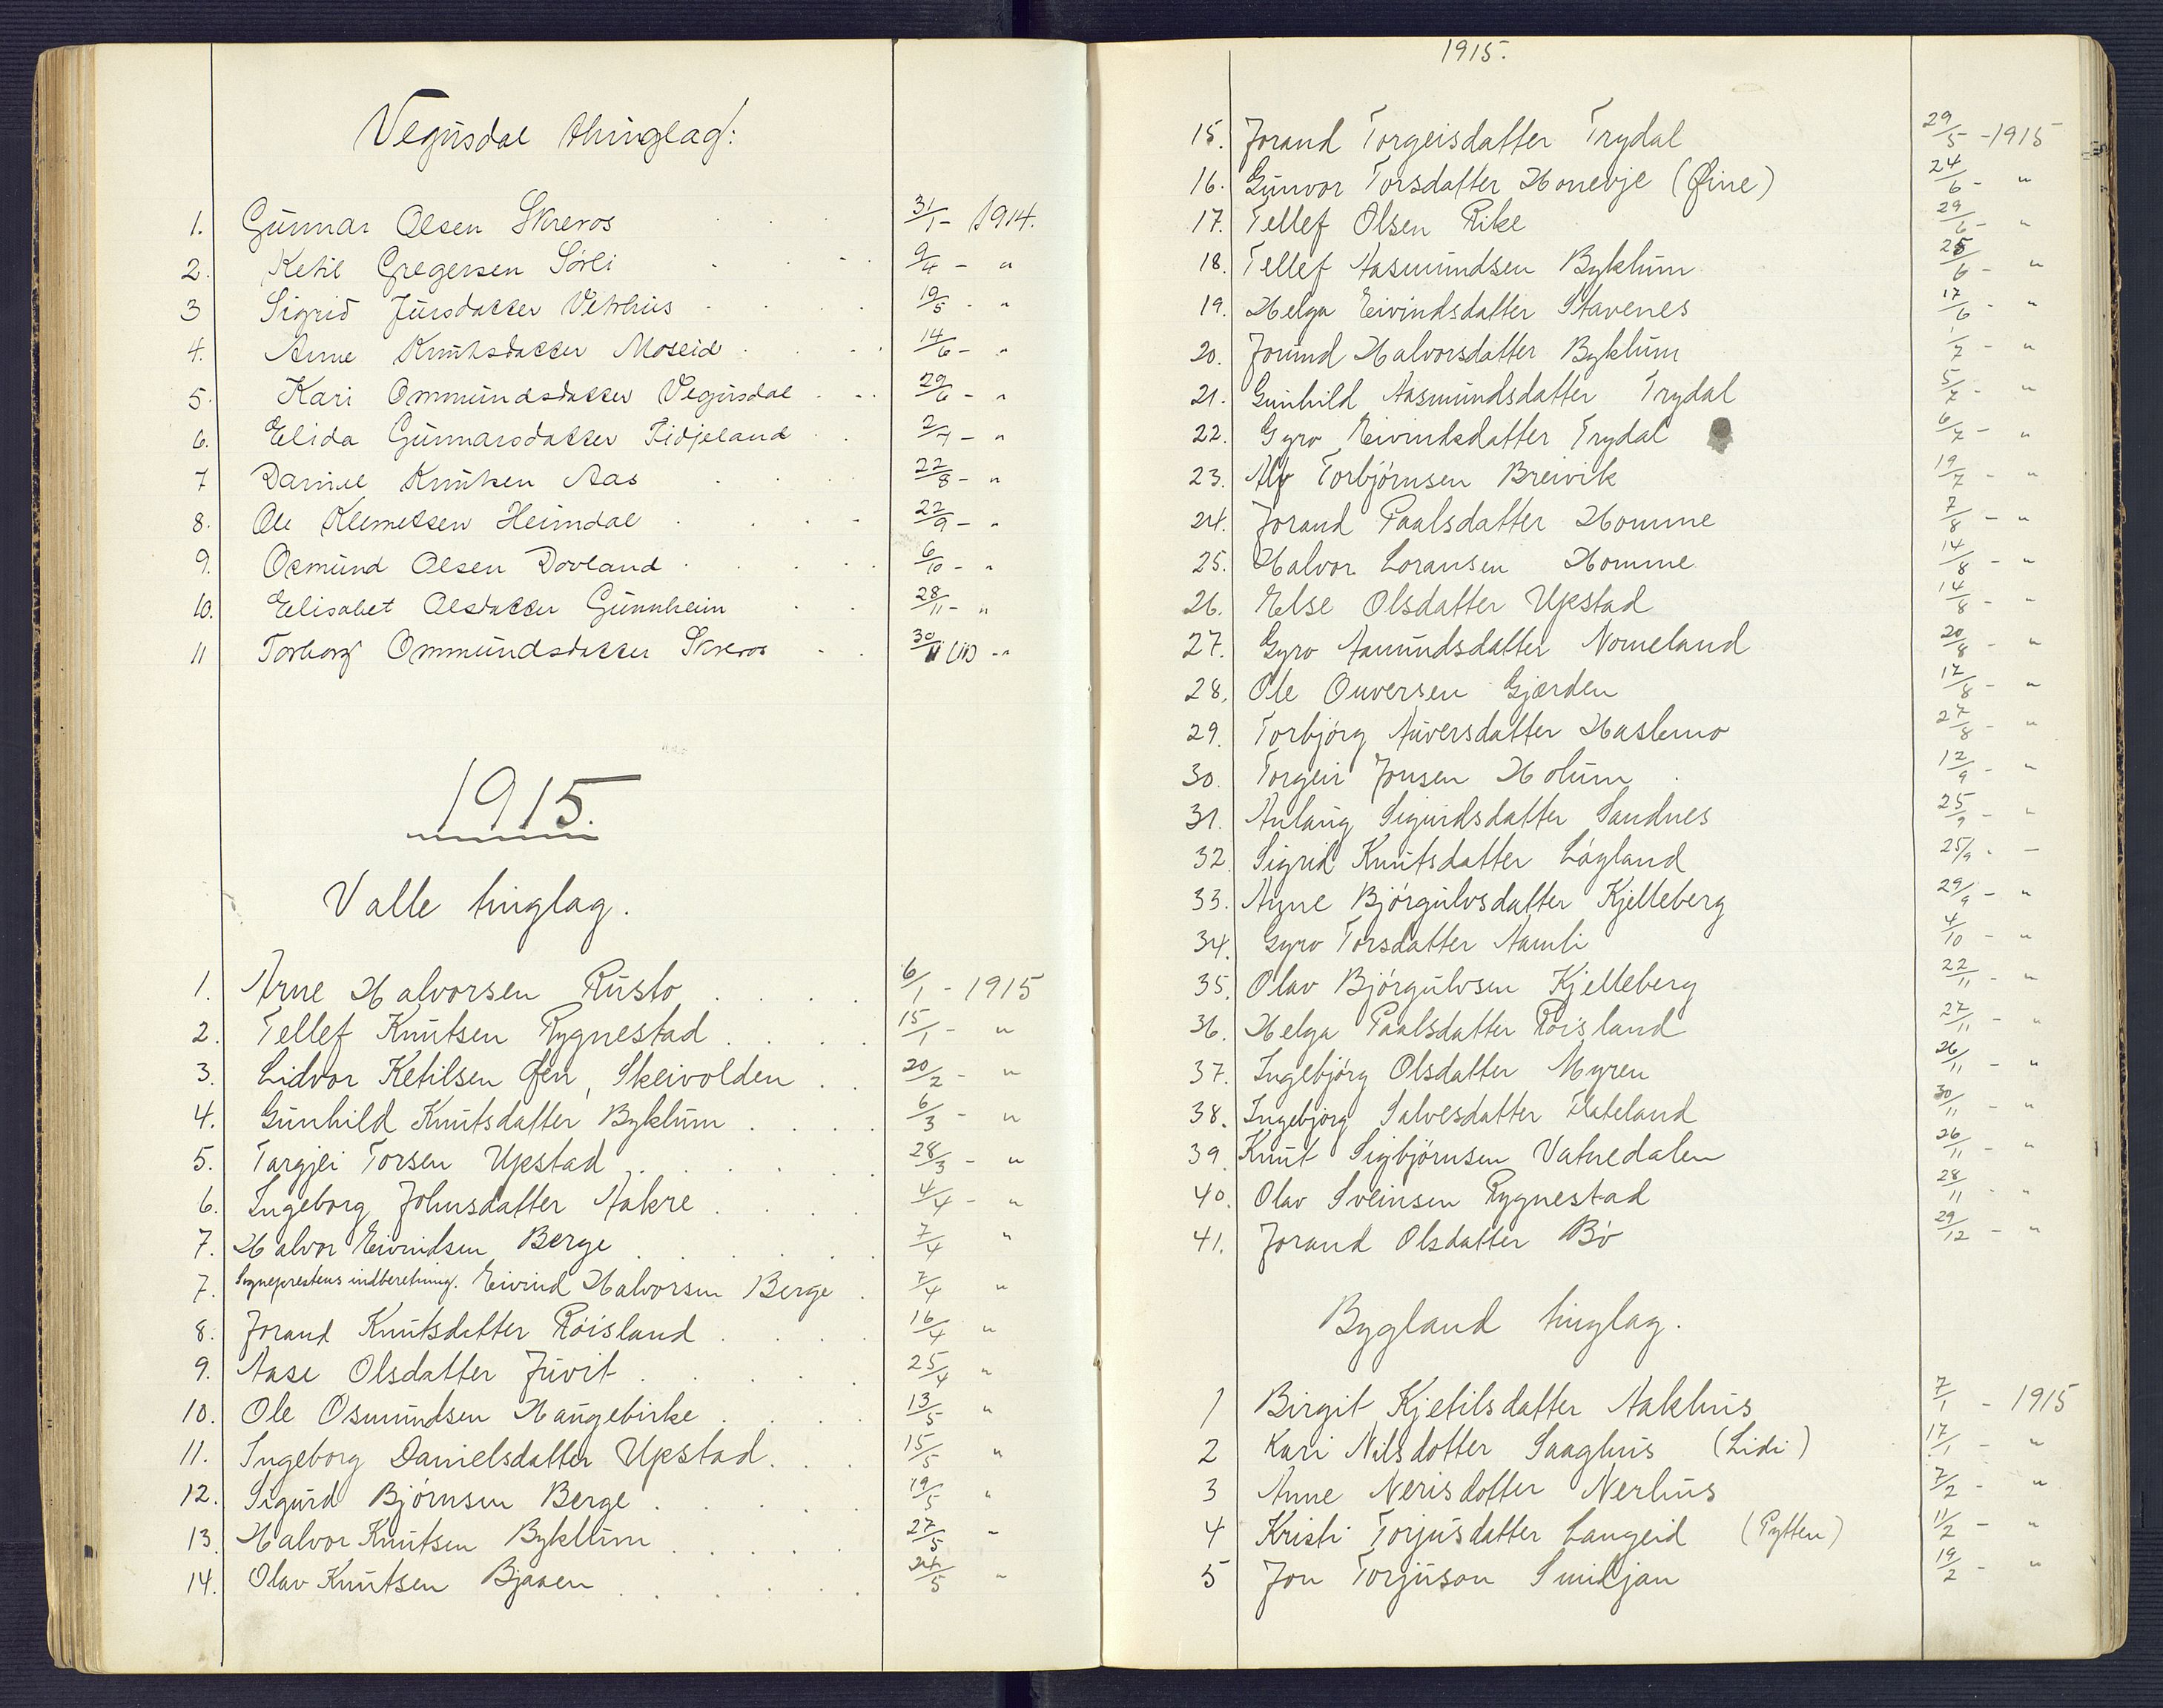 Vegusdal thinglag:
1. Gunnar Olsen Skreros . . . 31/1 - 1914.
2. Ketil Gregersen Sørli . . . 9/4 - "
3 Sigrid Jensdatter Vetrhus . . . 19/5 - "
4. Anne Knutsdatter Moseid . . . 14/6 - "
5. Kari Ommundsdatter Vegusdal . . . 29/6 - "
6. Elida Gunnarsdatter Tidjeland . . 2/7 - "
7 Daniel Knutsen Aas . . . 22/8 - "
8. Ole Klemetsen Heimdal . . . . 22/9 - "
9. Osmund Olsen Dovland . . . . 6/10 - "
10. Elisabet Olsdatter Gunnheim . . 28/11 - "
11 Torborg Ommundsdatter Skreros . . 30/11 (11) - "
1915.
Valle tinglag.
1. Arne Halvorsen Rusto . . . . 6/1 - 1915
2. Tellef Knutsen Rygnestad . . . . 15/1 - "
3. Lidvor Ketilsen Øen, Skeivolden . . 20/2 - "
4. Gunhild Knutsdatter Byklum . . . . 6/3 - "
5. Targjei Torsen Upstad . . . . . 28/3 - "
6. Ingeborg Johnsdatter Aakre . . . . 4/4 - "
7. Halvor Eivindsen Berge . . . . . 7/4 "
7. Sogneprestens indberetning. Eivind Halvorsen Berge . 7/4 "
8. Jorand Knutsdatter Røisland . . . . 16/4 "
9. Aase Olsdatter Juvit . . . . . 25/4 "
10. Ole Osmundsen Haugebirke . . . . 13/5 "
11. Ingeborg Danielsdatter Upstad. . . 15/5 "
12. Sigurd Bjørnsen Berge . . . . 19/5 "
13. Halvor Knutsen Byklum . . . . . 27/5 "
14. Olav Knutsen Bjaaen . . . . . 24/5 "
1915.
15. Jorand Torgeisdatter Trydal 29/5 - 1915
16. Gunvor Torsdatter Honevje (Øine) 24/6 - "
17. Tellef Olsen Rike 29/6 - "
18. Tellef Aasmundsen Byklum 25/6 - "
19. Helga Eivindsdatter Stavenes 17/6 - "
20. Jorund Halvorsdatter Byklum 1/7 - "
21. Gunhild Aasmundsdatter Trydal 5/7 - "
22. Gyro Eivindsdatter Trydal 6/7 - "
23. Alv Torbjørnsen Breivik 19/7 - "
24. Jorand Paalsdatter Homme 7/8 - "
25. Halvor Loransen Homme 14/8 - "
26. Else Olsdatter Upstad 14/8 - "
27. Gyro Aamundsdatter Nomeland 20/8 - "
28. Ole Ouversen Gjærden 17/8 - "
29. Torbjørg Auversdatter Haslemo 27/8 - "
30. Torgeir Jonsen Holum . 12/9 - "
31. Anlaug Sigurdsdatter Sandnes 25/9 - "
32. Sigrid Knutsdatter Løgland 25/9 - -
33. Agne Bjørgulvsdatter Kjelleberg 29/9 - "
34. Gyro Torsdatter Aamli 4/10 - "
35. Olav Bjørgulvsen Kjelleberg 22/11 - "
36. Helga Paalsdatter Røisland 27/11 - "
37. Ingebjørg Olsdatter Myren 26/11 - "
38. Ingebjørg Salvesdatter Flateland 30/11 - "
39. Knut Sigbjørnsen Vatnedalen 26/11 - "
40. Olav Sveinsen Rygnestad 28/11 - "
41. Jorand Olsdatter Bø 29/12 - "
Bygland tinglag.
1 Birgit Kjetilsdatter Aakhus 7/1 - 1915
2 Kari Nilsdotter Saaghus (Lidi) 17/1 - "
3 Anne Nerisdotter Nerhus 7/2 - "
4 Kristi Torjusdatter Langeid (Pytten) 11/2 - "
5 Jon Torjuson Smidjan 19/2 - "